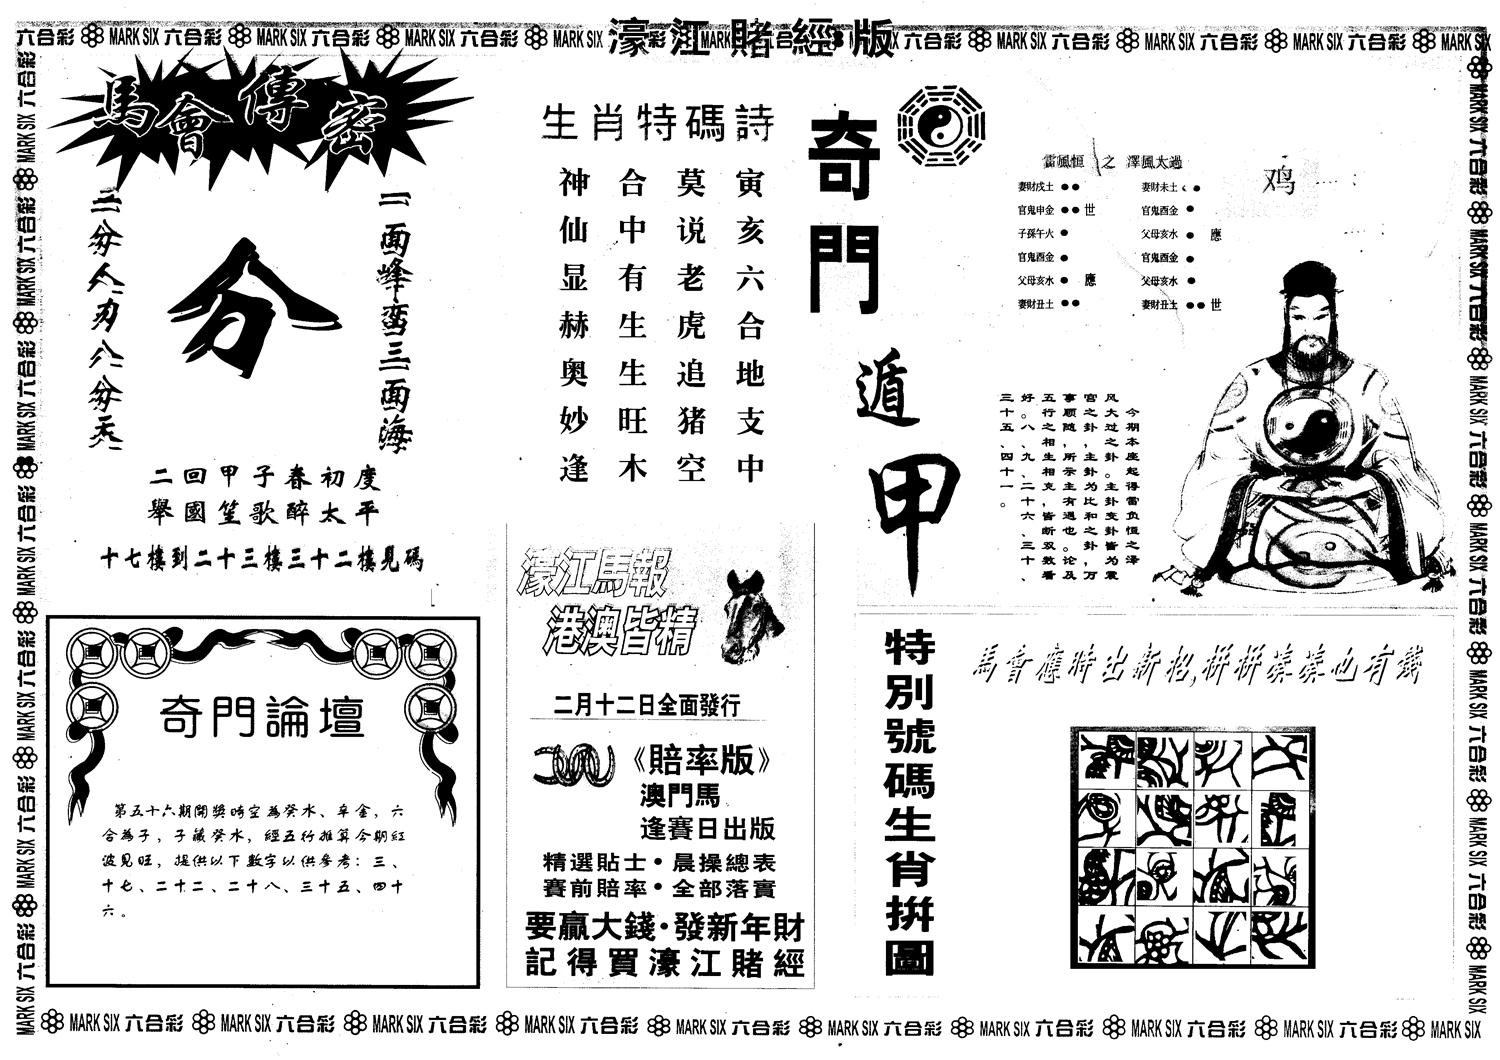 濠江賭經版
六合彩 MARK SIX 六合彩 MARK SIX 六合彩 MARK SIX 六合彩 MARK SIX
馬會傳密
一面峰蛮三面海
二分人力八分天
分
二回甲子春初度
舉國笙歌醉太平
十七樓到二十三樓三十二樓見碼
生肖特碼詩
寅亥六合地支中
莫说老虎追猪空
合中有生生旺木
神仙显赫奥妙逢
奇門遁甲
雷風恒 之 澤風大過
鸡
妻財戌土
官鬼申金 世
子孫午火
官鬼酉金
父母亥水 應
妻財丑土
妻財未土
官鬼酉金
父母亥水 應
官鬼酉金
父母亥水
妻財丑土 世
今期本座起得雷负恒之泽
风大过之卦。主卦变卦皆为震
宫之卦,主卦为比和之卦,万
事顺随,所示主有遇也。论及
五行之相生相克,皆断双数看
好。八、九、二十六、三十、
三十五、四十一。
奇門論壇
第五十六期開獎時空為癸水、辛金，六
合為子，子藏癸水，經五行推算今期紅
波見旺，提供以下數字以供參考：三、
十七、二十二、二十八、三十五、四十
六。
濠江馬報
港澳皆精
二月十二日全面發行
《賠率版》
澳門馬
逢賽日出版
精選貼士•晨操總表
賽前賠率•全部落實
要贏大錢·發新年財
記得買濠江賭經
特別號碼生肖拼圖
馬會應時出新招,拼拼湊湊也有錢
MARK SIX 六合彩 MARK SIX 六合彩 MARK SIX 六合彩 MARK SIX